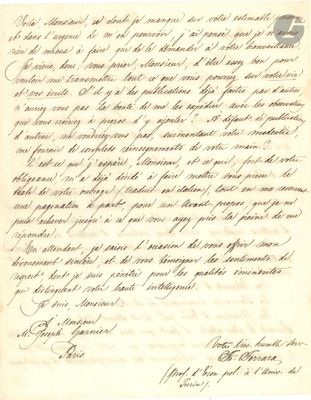 Voilà Monsieur, ce dont je manque sur votre estimable
et dans l'urgence de m'en pourvoir, j'ai pensé que je n'avais
rien de mieux à faire que de le demander à votre bienveillance.
Je viens, donc, vous prier, Monsieur, d'être assez bon pour
vouloir me transmettre tout ce que vous pourrez sur votre vie
et vos écrits. S'il y a des publications déjà faites par d'autres
n'auriez vous pas la bonté de me les expédier, avec les observations
que vous croirez à propos d'y ajouter? À défaut de publications
d'autrui, ne voudriez-vous pas, surmontant votre modestie,
me fournir de complets renseignements de votre main?
C'est ce que j'espère, Monsieur, et ce qui, fort de votre
obligeance m'a déjà décidé à faire mettre sous presse le
texte de votre ouvrage (traduit en italien), tout en me réservant
une pagination à part pour un avant-propos, que je ne
puis achever jusqu'à ce que vous ayez pris la peine de me
répondre.
En attendant, je saisis l'occasion de vous offrir mon
dévouement sincère, et de vous témoigner les sentiments de
respect dont je suis pénétré pour les qualités éminentes
qui distinguent votre haute intelligence.
Je suis, Monsieur,
À Monsieur
M. Joseph Garnier
Paris
Votre très humble serv.
Fr. Ferrara
(prof. d'Écon. pol. à l'Univ. de
Turin)